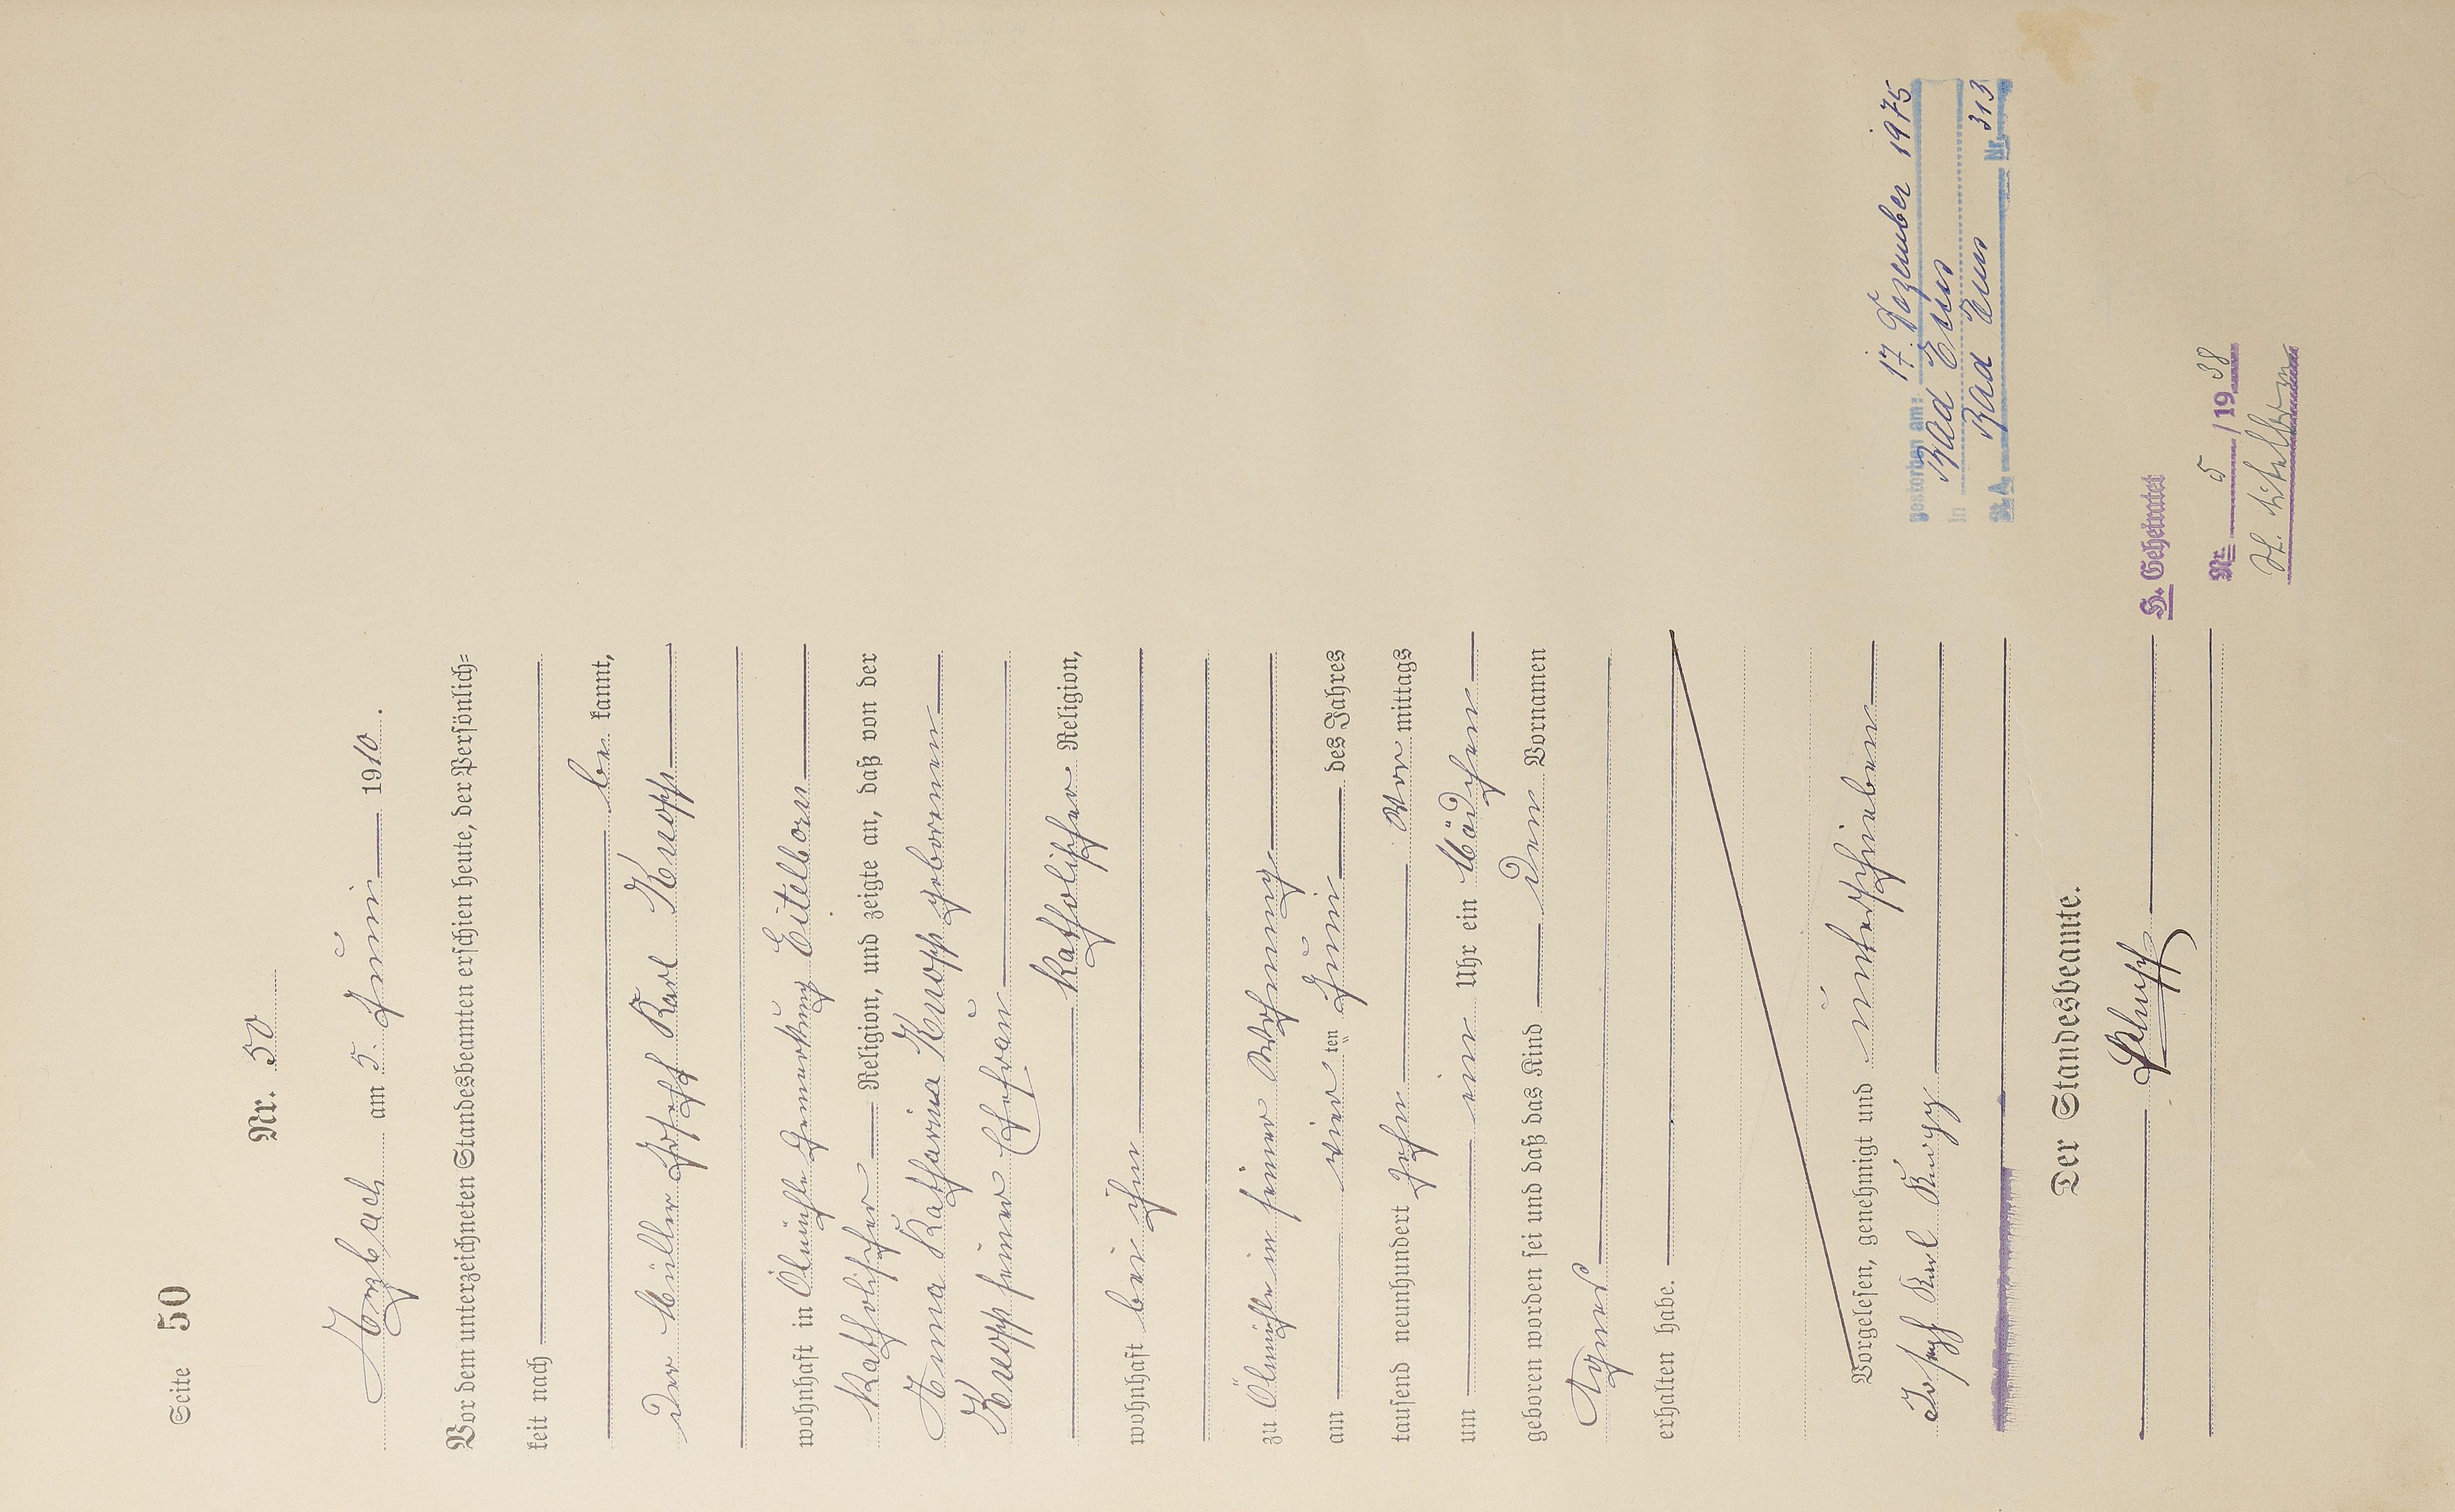 Seite 50
Nr. 50
Arzbach am 5. Juni 1910.
Vor dem unterzeichneten Standesbeamten erschien heute, der Persönlich-
keit nach
be kannt,
der Müller Joseph Karl Knopp
wohnhaft in Ölmühle Gemarkung Eitelborn
katholischer Religion, und zeigte an, daß von der
Anna Katharina Knopp geborenen
Knopp seiner Ehefrau
katholischer Religion,
wohnhaft bei ihm
zu Ölmühle in seiner Wohnung
am vier ten Juni des Jahres
tausend neunhundert zehn Vor mittags
um ein Uhr ein Mädchen
geboren worden sei und daß das Kind den Vornamen
Agnes
erhalten habe.
Vorgelesen, genehmigt und unterschrieben
Joseph Karl Knopp
Der Standesbeamte.
gestorben am: 17. Dezember 1975
in Bad Ems
St. A. Bad Ems Nr. 313
H. Geheiratet
Nr. 5/1938